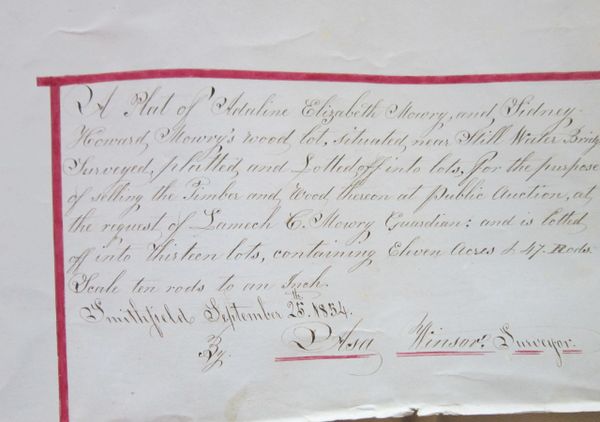 A Plat of Adaline Elizabeth Mowry, and Sidney
Howard Mowry's wood lot, situated near Still Water Bridge
Surveyed, platted, and Lotted off into lots, for the purpose
of selling the Timber and Wood thereon at public Auction, at
the request of Lamech C. Mowry Guardian: and is lotted
off into thirteen lots, containing Eleven Acres & 47. Rods.
Scale ten rods to an Inch.
Smithfield September 25th. 1854.
By. Asa Winsor. Surveyor.